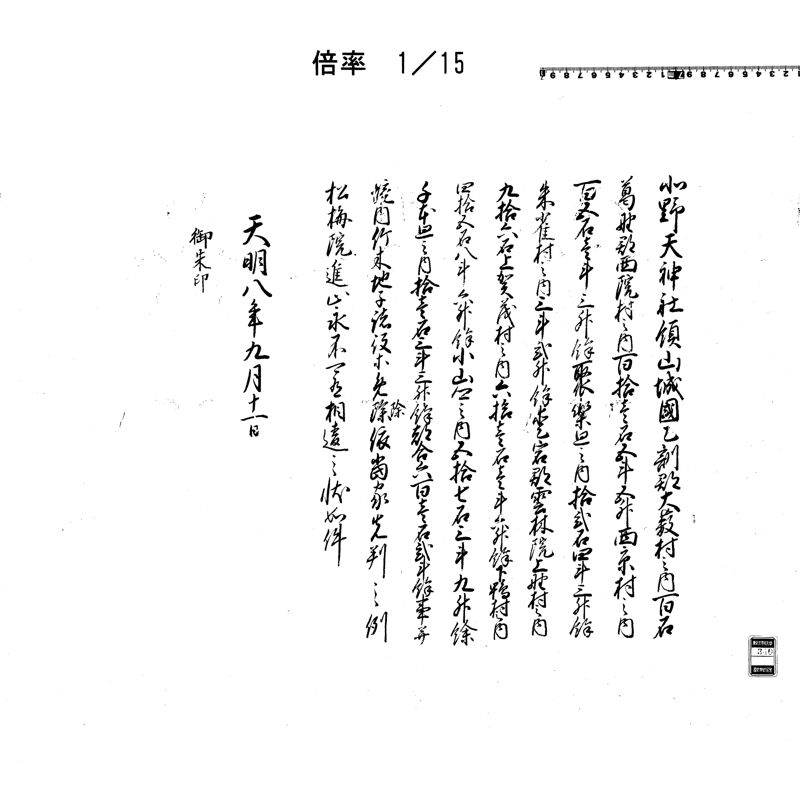 倍率 1/15
北野天神社領山城國乙訓郡大薮村之内百石
葛野郡西院村之内百拾壱石五斗五升西京村之内
百五石壱斗三升餘聚樂廻之内拾弐石四斗三升餘
朱雀村之内三斗弐升餘愛宕郡雲林院上野村之内
九拾六石上賀茂村之内六拾壱石壱斗六升餘下鴨村内
四拾五石八斗六升餘小山之内五拾七石三斗九升餘
千本廻之内拾壱石三斗三升餘都合六百壱石弐斗餘事并
境内竹木地子諸役等免除依當家先判之例
除
松梅院進止永不可有相違之状如件
天明八年九月十一日
御朱印